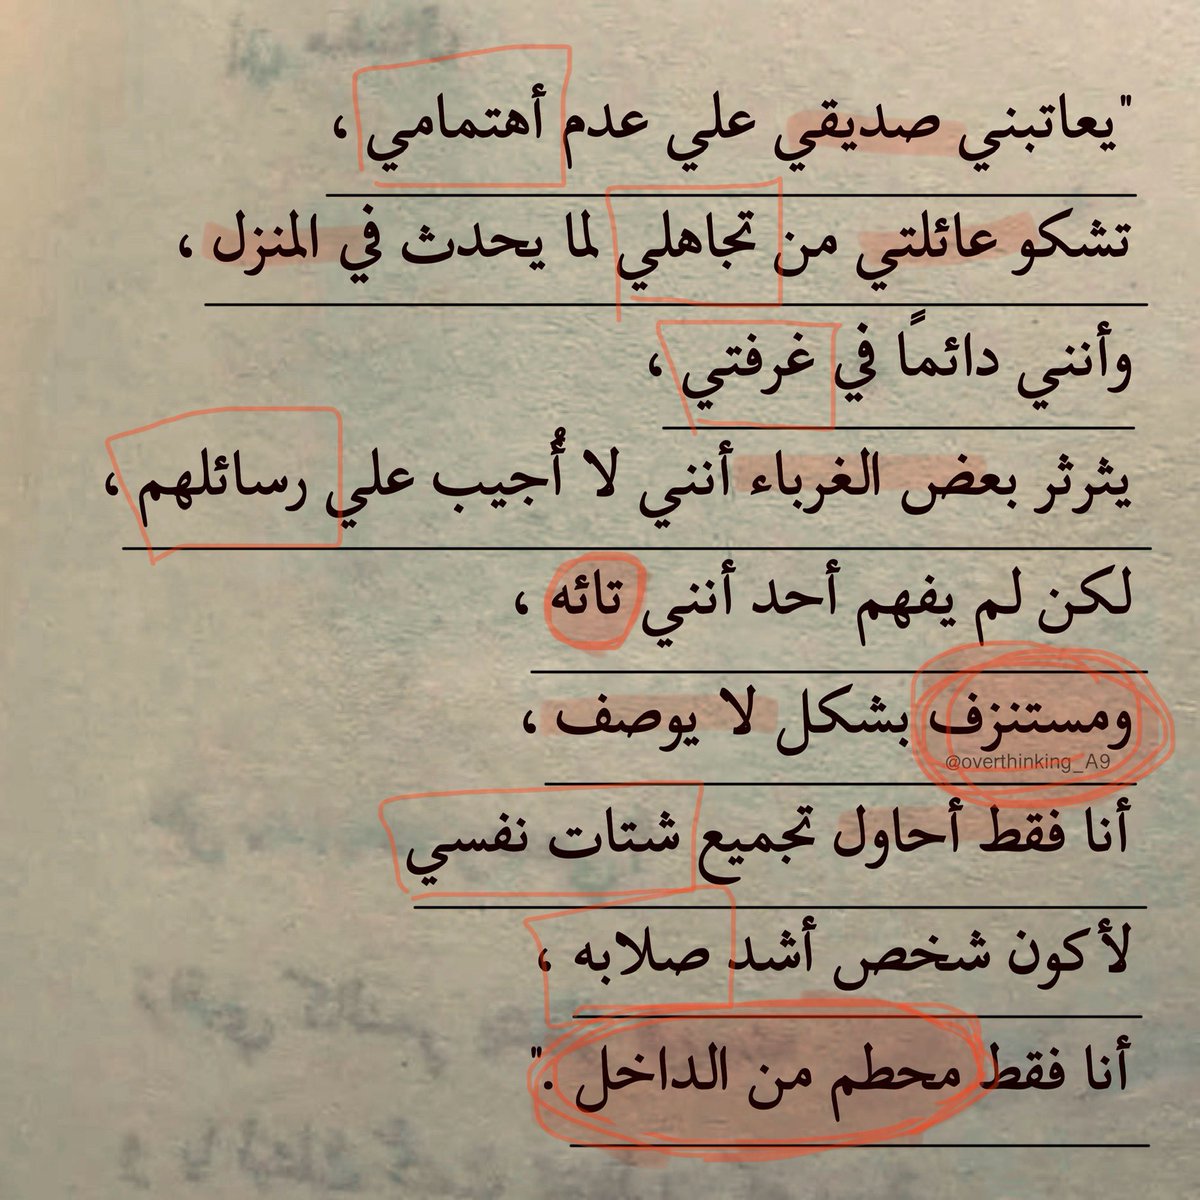 "يعاتبني صديقي علي عدم أهتمامي ،
تشكو عائلتي من تجاهلي لما يحدث في المنزل ،
وأنني دائماً في غرفتي ،
يثرثر بعض الغرباء أنني لا أُجيب علي رسائلهم ،
لكن لم يفهم أحد أنني تائه ،
ومستنزف بشكل لا يوصف ،
@overthinking_A9
أنا فقط أحاول تجميع شتات نفسي
لأكون شخص أشد صلابه ،
أنا فقط محطم من الداخل ."